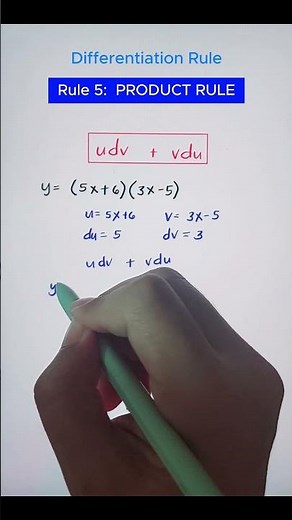 Differentiation Rule
Rule 5: PRODUCT RULE
udv + vdu
y= (5x+6)(3x-5)
u= 5x+6 v= 3x-5
du = 5 dv = 3
udv + vdu
y